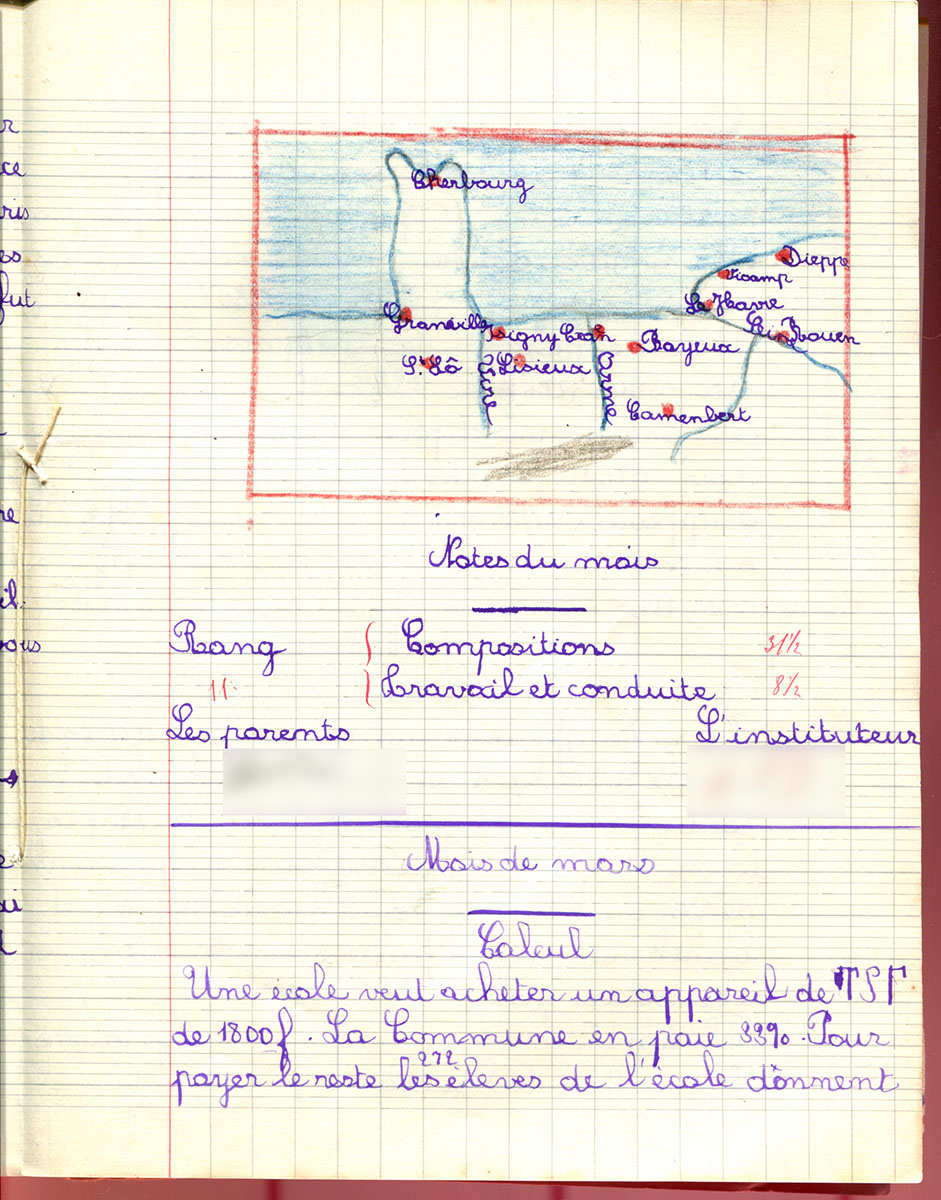 Cherbourg
Dieppe
Le Havre
Granville
Isigny
Rouen
Bayeux
St Lô
Lisieux
Vire
Orne
Camenbert
Notes du mois
Rang { Compositions 31½
11. Travail et conduite 8½
Les parents L'instituteur
Mois de mars
Calcul
Une école veut acheter un appareil de TSF
de 1800f. La Commune en paie 33%. Pour
272
payer le reste les élèves de l'école dônnent